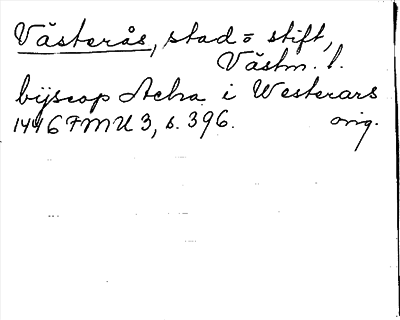 Västerås, stad o stift,
Västm. l.
bijscop Acha i Westerars
1446 FMU 3, s. 396. orig.